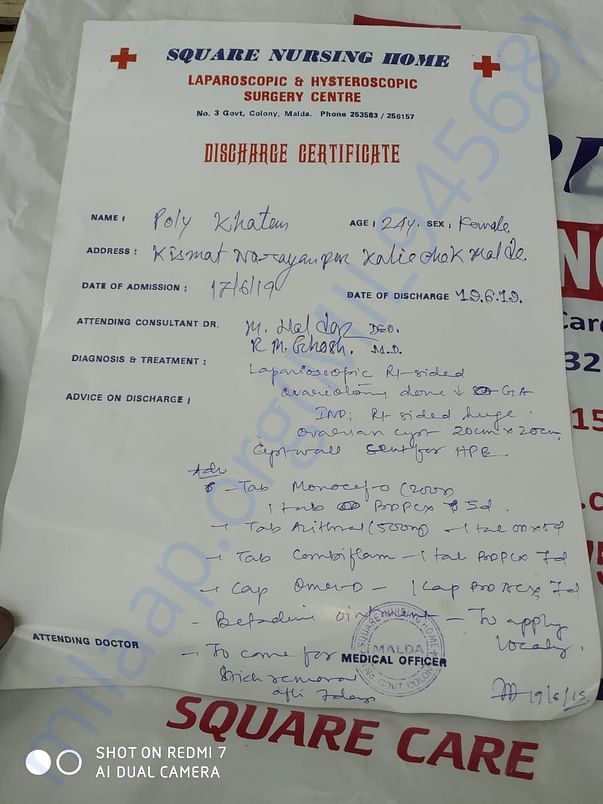 SQUARE NURSING HOME
LAPAROSCOPIC & HYSTEROSCOPIC
SURGERY CENTRE
No. 3 Govt, Colony, Malda. Phone 253583 / 256157
DISCHARGE CERTIFICATE
NAME : Poly Khatun AGE : 24y. SEX : Female
ADDRESS : Kismat Narayanpur Kaliachok Malda.
DATE OF ADMISSION : 17/6/19
DATE OF DISCHARGE 19.6.19.
ATTENDING CONSULTANT DR. M. Haldar DGO.
R M. Ghosh. M.D.
DIAGNOSIS & TREATMENT : Laparioscopic Rt-sided
ADVICE ON DISCHARGE : done ↓ GA
IND: Rt sided huge
ovarian cyst 20cm x 20cm,
Cyst wall sent for HPE.
Adv
- Tab Monocef-O (200)
1 tab BDPC x 5d.
- Tab Azithral (500mg) - 1 tab OD x 5d
- Tab Combiflam - 1 tab BDPC x 7d
- Cap Omez-D - 1 cap BD AC x 7d
- Betadine ointment - To apply
locally.
ATTENDING DOCTOR
- To come for MEDICAL OFFICER
Stich removal
after 7 days
19/6/19
SQUARE NURSING HOME
MALDA
GOVT COLONY
SQUARE CARE
SHOT ON REDMI 7
AI DUAL CAMERA